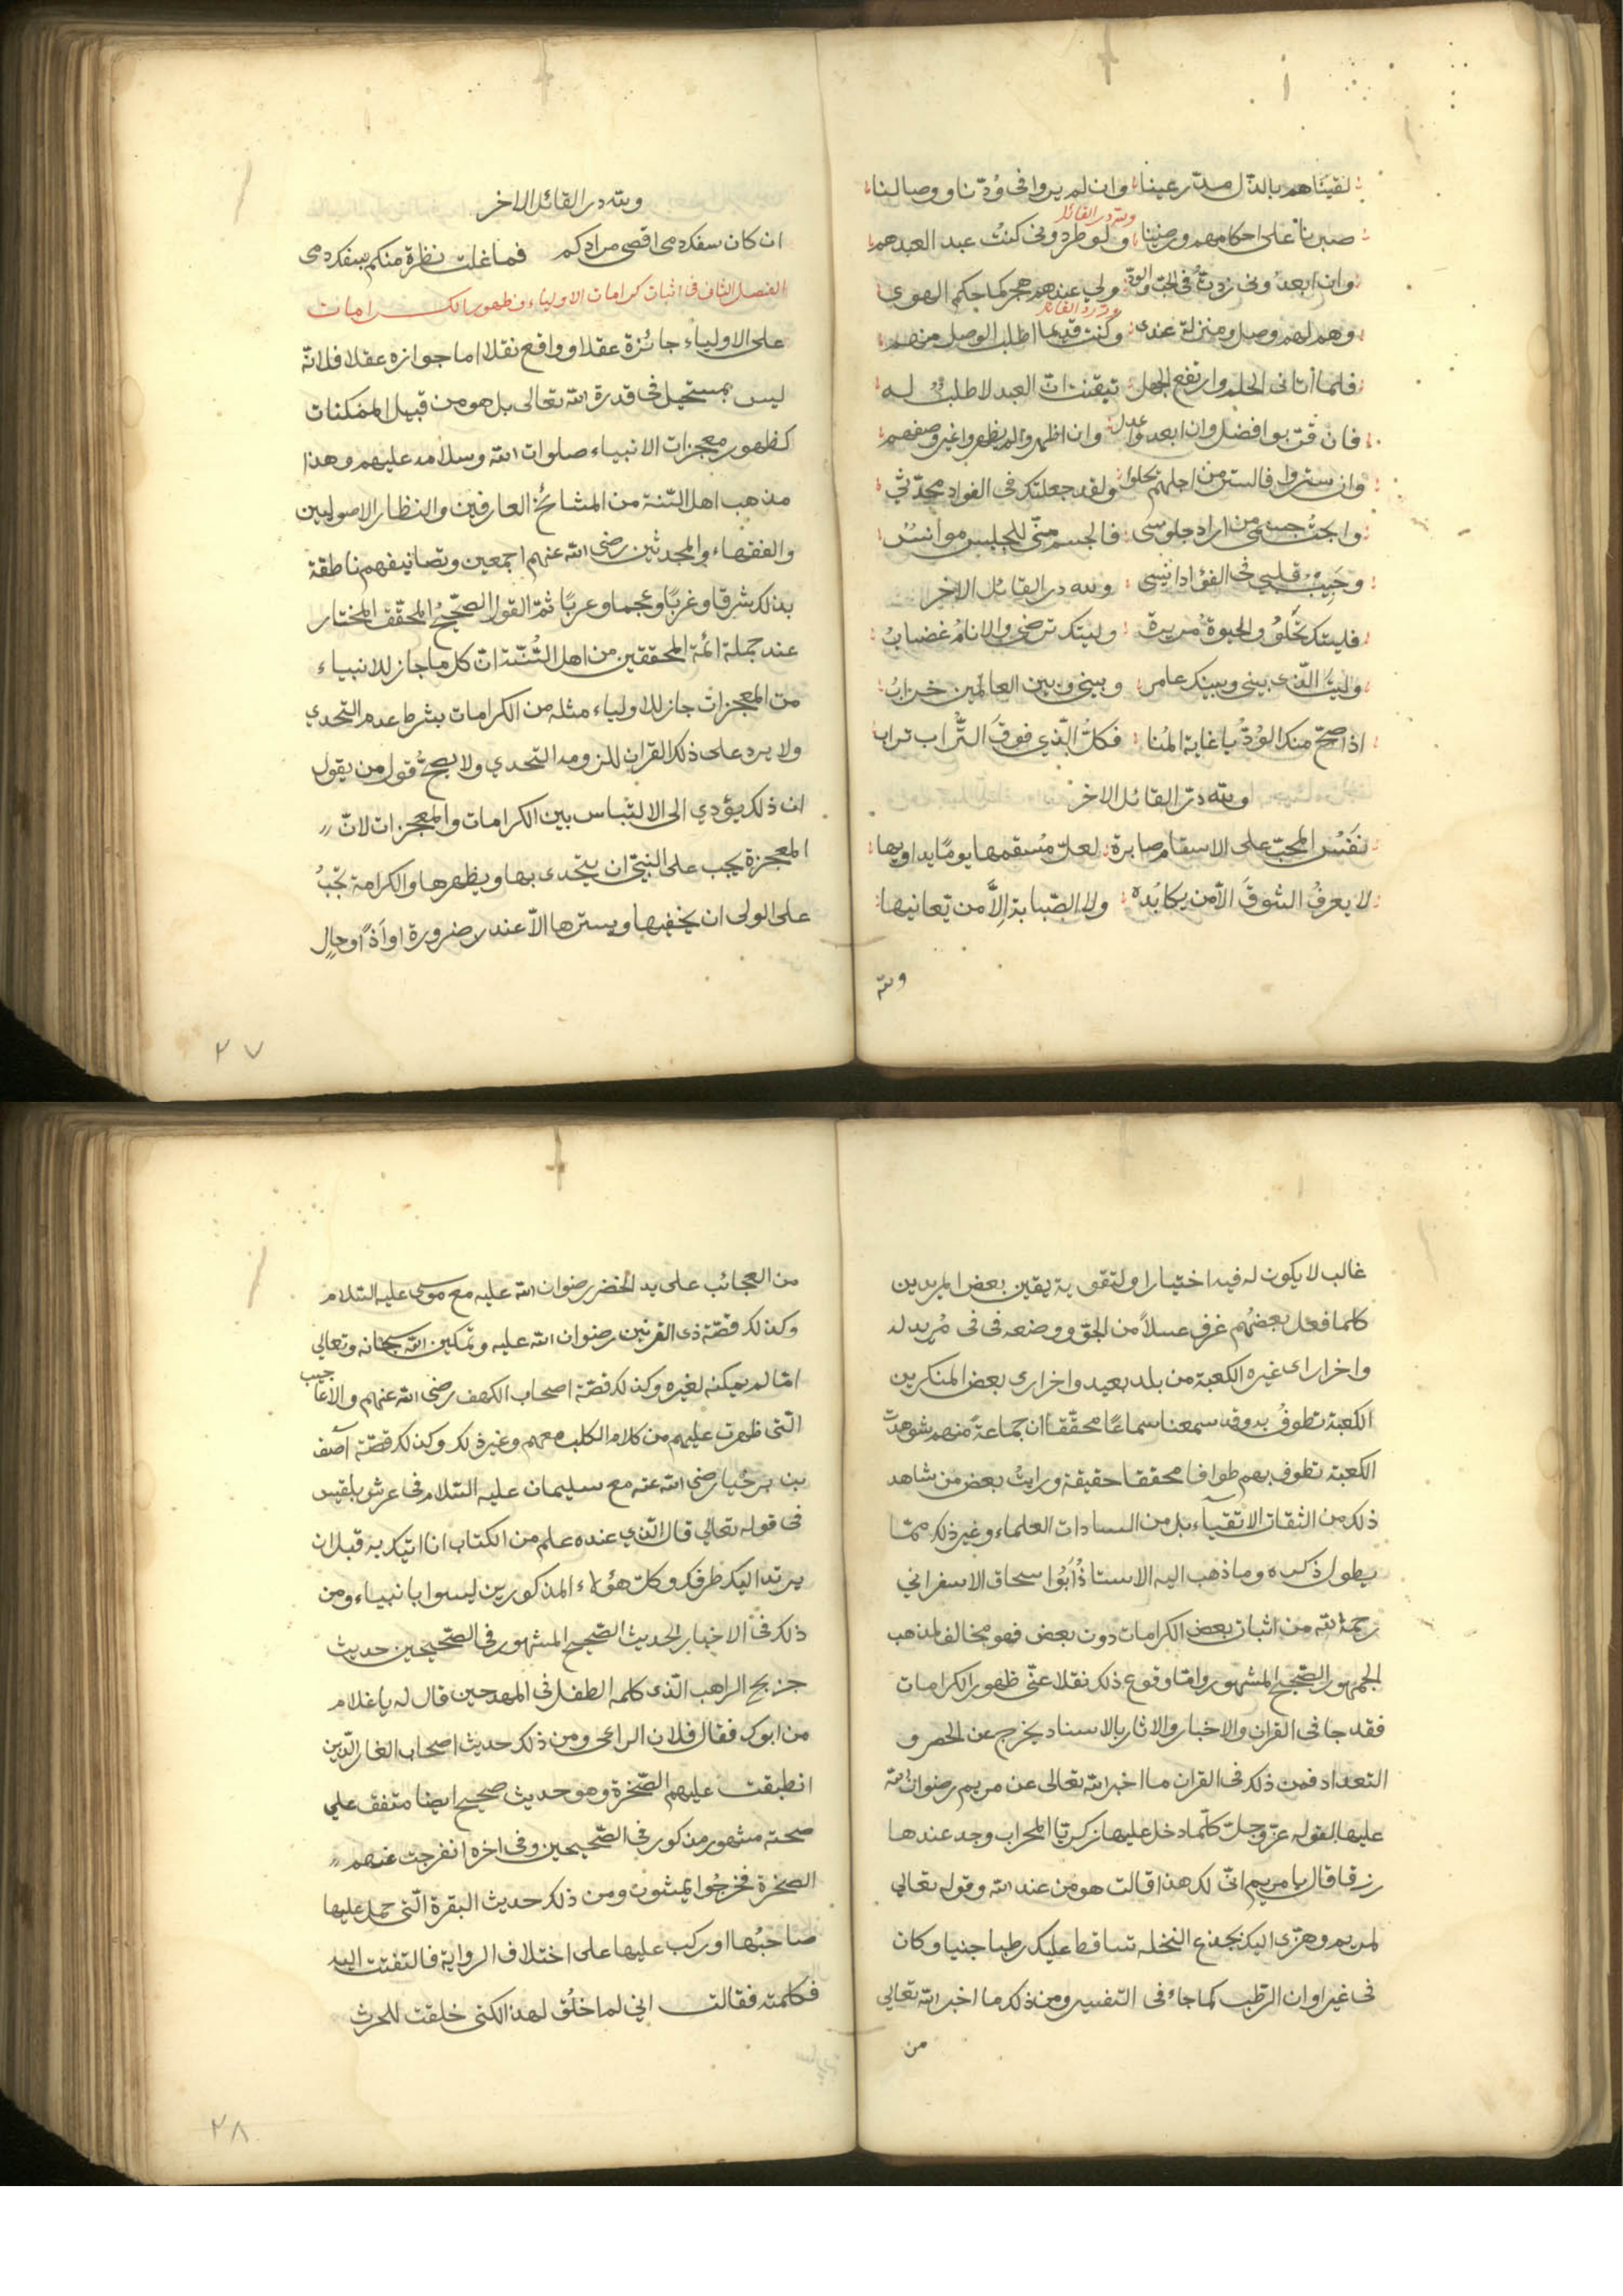 لقيناهم بالذل مذ رعينا وان لم يروا فى ودنا ووصالنا
ولله در القائل
صبرنا على احكامهم ورضينا ولو طردونى كنت عبد العبدهم
وان ابعدونى زدت فى الحب والود ولى عندهم هجر كما حكم الهوى
ولله در القائل
وهم لهم وصل ومنزلة عندى وكنت قديما اطلب الوصل منهم
فلما أتانى الحلم وارتفع الجهل تيقنت ان العبد لا طلب له
فان قربوا فضل وان ابعدوا عدل وان اظهروا لم يظهروا غير وصفهم
وان ستروا فالستر من اجلهم يحلو ولقد جعلتك فى الفواد محدثي
وابحت جسمى من اراد جلوسى فالجسم منّي للجليس موانس
وحبيب قلبي فى الفؤاد انيسى ولله در القائل الاخر
فليتك تحلو والحيوة مريرة وليتك ترضى والانام غضاب
وليت الذى بينى وبينك عامر وبينى وبين العالمين خراب
اذا صح منك الود يا غاية المنا فكل الذي فوق التراب تراب
ولله در القائل الاخر
نفس المحب على الاسقام صابرة لعل مسقمها يوما يداويها
لا يعرف الشوق الا من يكابده ولا الصبابة إلا من تعانيها
ولله
ولله در القائل الاخر
ان كان سفك دمى اقصى مرادكم فما غلت نظرة منكم بسفك دمى
الفصل الثانى فى اثبات كرامات الاولياء وظهور الكرامات
على الاولياء جائزة عقلا وواقع نقلا اما جوازه عقلا فلانه
ليس بمستحيل فى قدرة الله تعالى بل هو من قبيل الممكنات
كظهور معجزات الانبياء صلوات الله وسلامه عليهم وهذا
مذهب اهل السنة من المشائخ العارفين والنظار الاصوليين
والفقهاء والمحدثين رضى الله عنهم اجمعين وتصانيفهم ناطقة
بذلك شرقا وغربًا وعجما وعربًا ثم القول الصحيح المحقق المختار
عند جملة ائمة المحققين من اهل السنة ان كل ما جاز للانبياء
من المعجزات جاز للاولياء مثله من الكرامات بشرط عدم التحدي
ولا يرد على ذلك القران للزومه التحدي ولا يصح قول من يقول
ان ذلك يؤدي الى الالتباس بين الكرامات والمعجزات لانّ
المعجزة يجب على النبى ان يتحدى بها ويظهرها والكرامة تجب
على الولى ان يخفيها ويسترها الا عند ضرورة او اذن او حال
٢٧
غالب لا يكون له فيه اختيار او لتقوية يقين بعض المريدين
كلما فعل بعضهم غرف عسلاً من الجو ووضعه فى فى مريد له
واخر ارى غيره الكعبة من بلد بعيد واخر ارى بعض المنكرين
الكعبة تطوف به وقد سمعنا سماعًا محققا ان جماعة منهم شوهدت
الكعبة تطوف بهم طوافا محققا حقيقة ورايت بعض من شاهد
ذلك من الثقات الاتقياء بل من السادات العلماء وغير ذلك مما
يطول ذكره وما ذهب اليه الاستاذ أبوا سحاق الاسفرانى
رحمه الله من اثبات بعض الكرامات دون بعض فهو مخالف لمذهب
الجمهور الصحيح المشهور واما وقوع ذلك نقلا عنى ظهور الكرامات
فقد جا فى القران والاخبار والاثار بالاسناد يخرج عن الحصر و
التعداد فمن ذلك فى القران ما اخبر الله تعالى عن مريم رضوان الله
عليها بقوله عز وجل كلما دخل عليها زكريا المحراب وجد عندها
رزقا قال يا مريم انى لك هذا قالت هو من عند الله وقوله تعالى
لمريم وهزى اليك بجذع النخله تساقط عليك رطبا جنيا وكان
فى غير اوان الرطب كما جاء فى التفسير ومن ذلك ما اخبر الله تعالى
من
من العجائب على يد الخضر رضوان الله عليه مع موسى عليه السلام
وكذلك قصة ذى القرنين رضوان الله عليه وتمكين الله سبحانه وتعالى
اما لم يمكنه لغيره وكذلك قصة اصحاب الكهف رضى الله عنهم والاعاجيب
التى ظهرت عليهم من كلام الكلب معهم وغير ذلك وكذلك قصة آصف
بن برخيا رضى الله عنه مع سليمان عليه السلام فى عرش بلقيس
فى قوله تعالى قال الذي عنده علم من الكتاب انا اتيك به قبل ان
يرتد اليك طرفك وكل هؤلاء المذكورين ليسوا بانبياء ومن
ذلك فى الاخبار الحديث الصحيح المشهور فى الصحيحين حديث
جريج الراهب الذى كلمه الطفل فى المهد حين قال له يا غلام
من ابوك فقال فلان الراعى ومن ذلك حديث اصحاب الغار الذين
انطبقت عليهم الصخرة وهو حديث صحيح ايضا متفق على
صحته مشهور مذكور فى الصحيحين وفى اخره انفرجت عنهم
الصخرة فخرجوا يمشون ومن ذلك حديث البقرة التى حمل عليها
صاحبها او ركب عليها على اختلاف الرواية فالتفتت اليه
فكلمته فقالت انى لما خلق لهذا لكنى خلقت للحرث
٢٨